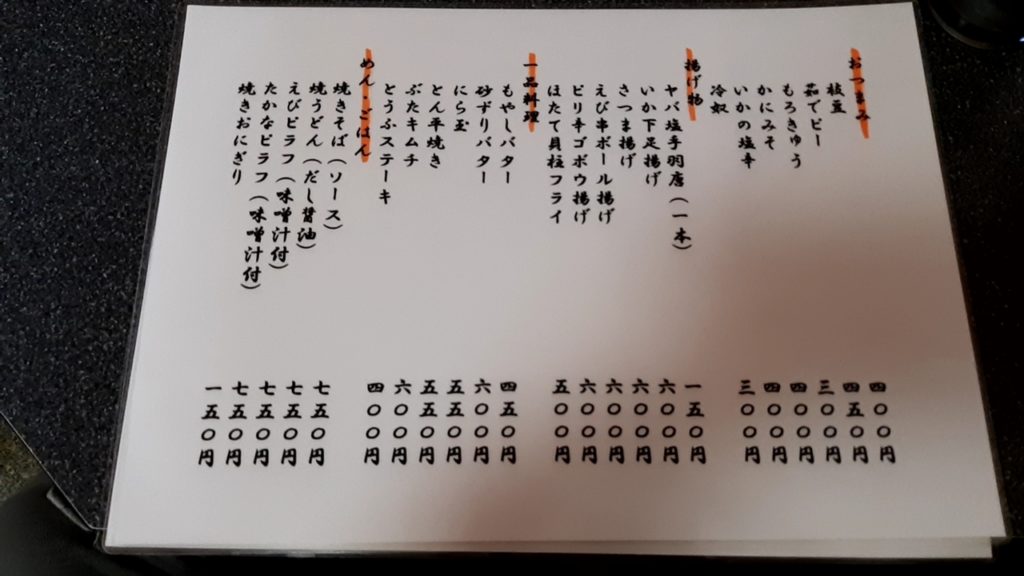 おつまみ
枝豆 四〇〇円
茹でピー 四五〇円
もろきゅう 三〇〇円
かにみそ 四〇〇円
いかの塩辛 四〇〇円
冷奴 三〇〇円
揚げ物
ヤバ塩手羽唐(一本) 一五〇円
いか下足揚げ 六〇〇円
さつま揚げ 六〇〇円
えび串ボール揚げ 六〇〇円
ピリ辛ゴボウ揚げ 六〇〇円
ほたて貝柱フライ 五〇〇円
一品料理
もやしバター 四五〇円
砂ずりバター 六〇〇円
にら玉 五五〇円
とん平焼き 五五〇円
ぶたキムチ 六〇〇円
とうふステーキ 四〇〇円
めん・ごはん
焼きそば(ソース) 七五〇円
焼うどん(だし醤油) 七五〇円
えびピラフ(味噌汁付) 七五〇円
たかなピラフ(味噌汁付) 七五〇円
焼きおにぎり 一五〇円